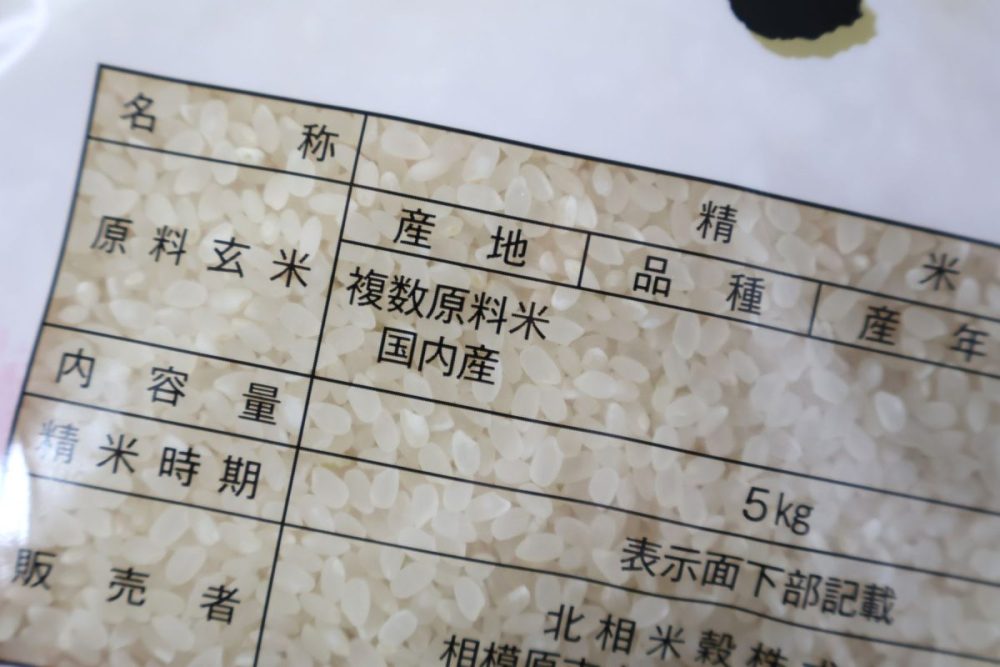 名称 精米
原料玄米 産地 品種 産年
複数原料米
国内産
内容量 5kg
精米時期 表示面下部記載
販売者 北相米穀株式
相模原市